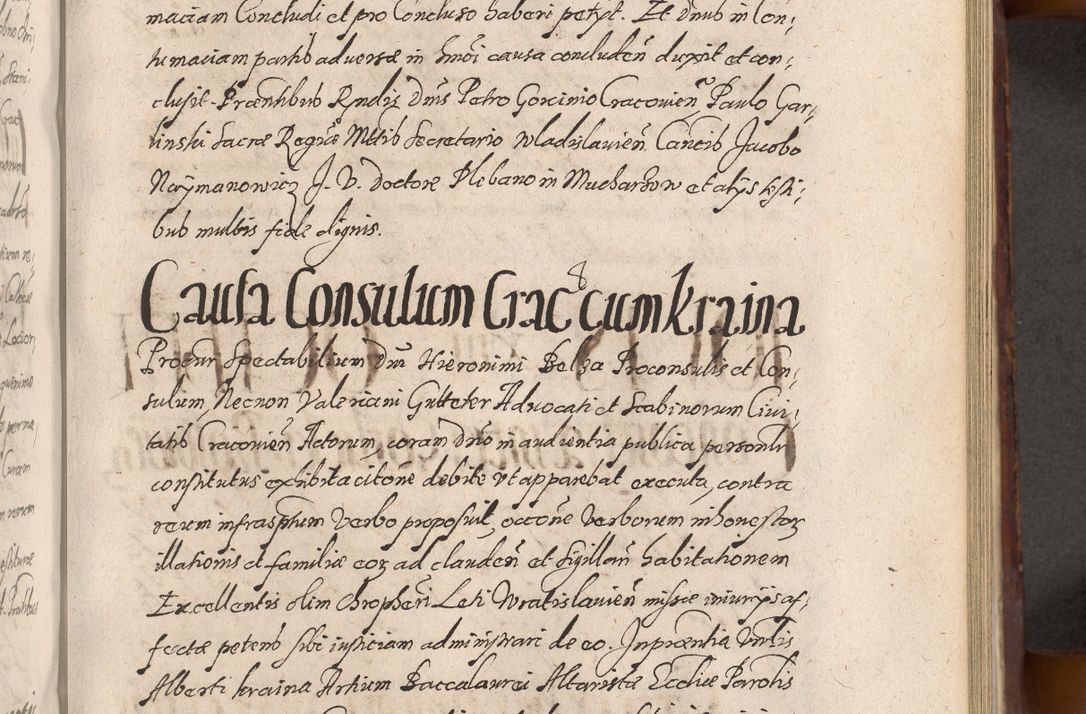 maciam Concludi et pro Concluso haberi petyt. Et Dnus in Con,
tumaciam partis adversæ in hmoi causa concluden duxit et con,
clusit. Præntibus Rndis Dnis Petro Gorcinio Cracovien Paulo Gar,
linski Sacræ Regiæ Mttis Secretario Wladislavien Cancis Jacobo
Naymanowicz J. V. Doctore Plebano in Mucharzow et alys testi,
bus multis fide dignis.
Causa Consulum Crac cum kraina
Procur Spectabilium Dni Hieronimi Belza Proconsulis et Con,
sulum, Necnon Valeriani Gutteter Advocati et Scabinorum Civi,
tatis Cracovien Actorum, coram Dno in audientia publica personlr
constitutus exhibita citone debite vt apparebat executa, contra
reum infrasptum verbo proposuit, occone verborum inhonestor
illationis et familiæ eor ad clauden et sigillan habitationem
Excellentis olim Chropheri Leti Wratislavien missæ iniurys af,
fectæ petens sibi iusticiam administrari de eo. In præntia Vnrlis
Alberti kraina Artium Baccalaurei Altaristæ Eccliæ Parolis